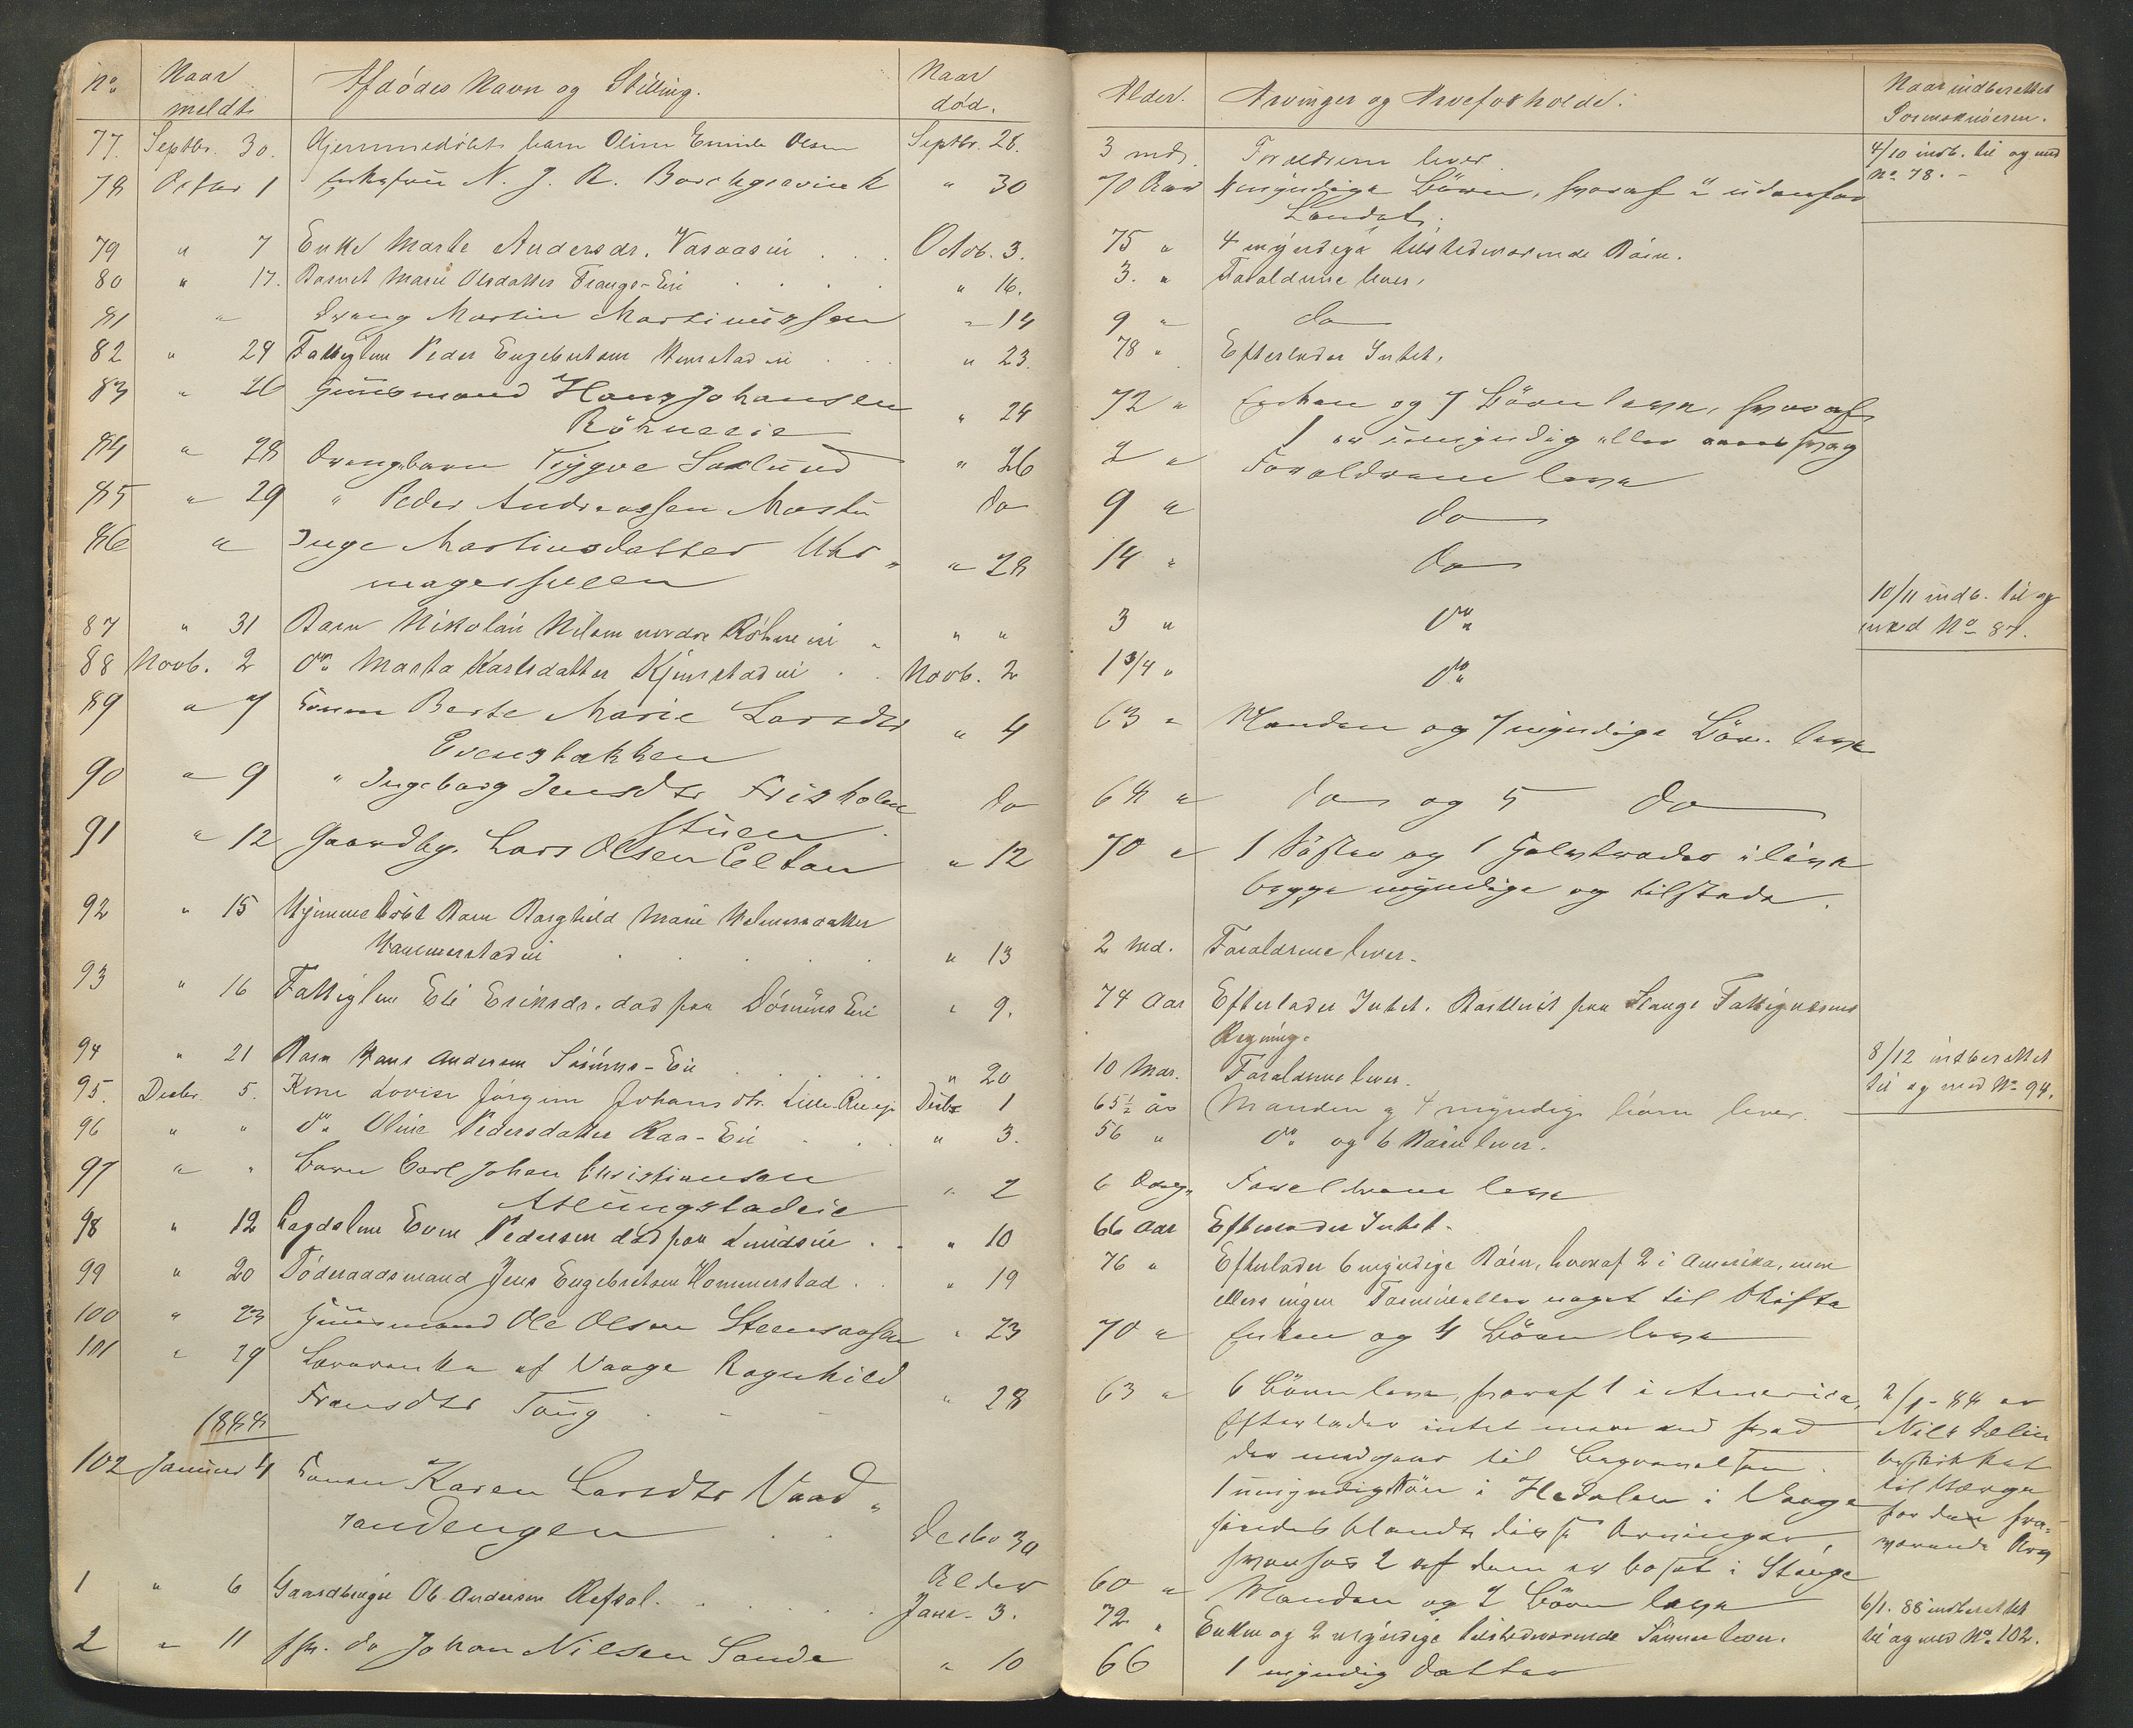 No. Naar meldt Afdødes Navn og Stilling. Naar død. Alder. Arvinger og Arveforholde: Naar indberettet Sorenskriveren.
77. Septbr. 30. Hjemmedøbt barn Oline Olsen Septbr. 28. 3 mdr. Forældrene lever 4/10 indb. til og med
78 Octbr 1 Enkefrue N. J. R. Borchgrevinck " 30 70 Aar 4 myndige Børn, hvoraf udenfor No. 78. -
Landet.
79 " 7 Enke Marte Andersdr. Vasaasei Octob. 3. 75 " 4 myndige tilstedværende Børn.
80 " 17. Barnet Marie Olsdatter Frangs-Eie " 16. 3. " Forældrene lever.
81 " Dreng Martin Martinussen " 14 9 " do
82 " 24 Fattiglem Peder Engebretsen " 23. 78 " Efterlader Intet.
83 " 26 Huusmand Hans Johansen " 24 72 " Enken og 7 Børn leve, hvoraf
Röhneeie 1 er umyndig eller svag
84 " 28 Drengebarn Trygve Saxlund " 26 2 " Forældrene leve
85 " 29 " Peder Andreassen do 9 " do
86 " Inge Martinsdatter Uhr- " 28 14 " do
magerstuen
87 " 31 Barn Nikolai Nilsen nordre Röhne eie " " 3 " Do 10/11 indb. til og
med No 87.
88 Novb. 2 Do Marta Karlsdatter Kjemstad eie Novb. 2 1 3/4 " Do
89 " 7 Konen Berte Marie Larsdtr " 4 63 " Manden og 7 myndige Börn leve
Evensbakken
90 " 9 " Ingeborg Jensdtr Frisholm do 64 " do og 5 do
stuen
91 " 12 Gaardbr. Lars Olsen Eltan " 12 70 " 1 Söster og 1 Halvbroder i live
begge myndige og tilstede.
92 " 15 Hjemmedöbt Barn Borghild Marie Helmersdatter
Hammerstadeie " 13 2 md. Forældrene lever.
93 " 16 Fattiglem Eli Eriksdr. död paa Eie " 9. 74 Aar Efterlader Intet. paa Stange Fattigvæsens
Regning.
94 " 21 Barn Hans Andersen Eie " 20 10 Mdr. Forældrene lever. 8/12 indberettet
til og med No. 94.
95. Decbr. 5. Kone Lovise Jörgine Johansdtr. Lille Decbr 1 65 1/2 år Manden og 4 myndige börn lever.
96 " " Do Oline Pedersdatter Raa-Eie " 3. 56 " Do og 6 Börn lever.
97 " " Barn Carl Johan Christiansen " 2 6 Dage Forældrene leve
Atlungstadeie
98 " 12 Lægdslem Even Pedersen död paa " 10 66 Aar Efterlader Intet.
99 " 20 Föderaadsmand Jens Engebretsen Hommerstad " 19 76 " Efterlader 6 myndige Börn, hvoraf 2 i Amerika, men
ellers ingen Formue eller noget til Skifte
100 " 23 Huusmand Ole Olsen " 23 70 " Enken og 4 Börn leve
101 " 29 Lærerenke af Vaage Ragnhild
Fransdtr Tong " 28 63 " 6 Börn leve, hvoraf 1 i America, 2/1-88 er
Efterlader intet mere end hvad Nils
der medgaar til Begravelsen beskikket
1 umyndig Sön i Hedalen i Vaage til Værge
findes blandt disse Arvinger, for den fra-
hvorhos 2 af dem er bosat i Stange værende Arv
1888
102 Januar 4 Konen Karen Larsdtr Vaad-
randengen Decbr 30 60 " Manden og 7 Börn leve 6/1. 88 indberettet
til og med No. 102.
Alder
1 " 6 Gaardbruger Ole Andersen Refsal Janr. 3. 72 " Enken og 2 myndige tilstedværende Sönner lever.
2 " 11 do Johan Nilsen Sande " 10 66 1 myndig Datter